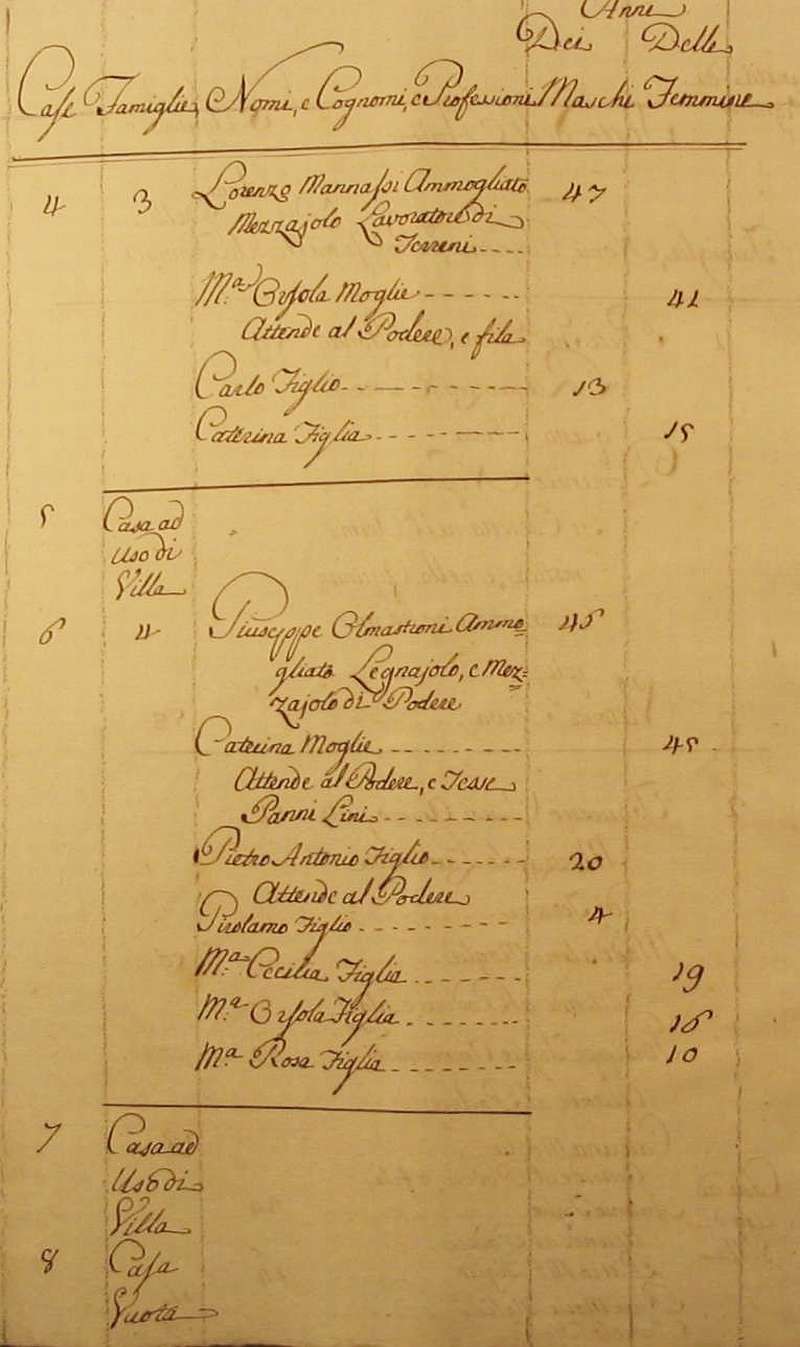 Anni
Dei Delle
Case Famiglie, Nomi, e Cognomi, e Professioni Maschi Femmine
4 3 Lorenzo Mannassi Ammogliato 47
Mezzajolo Lavoratore di
Terreni
M.ª Orsola Moglie 41
Attende al Podere, e fila
Carlo Figlio 13
Caterina Figlia 15
5 Casa ad
Uso di
Villa
6 4 Giuseppe Olmastroni Ammo
gliato Legnajolo, e Mez=
zajolo di Podere
Caterina Moglie 45
Attende al Podere, e Tesse
Panni Lini
Pietro Antonio Figlio 20
Attende al Podere
Girolamo Figlio 4
M.ª Cecilia Figlia 19
M.ª Orsola Figlia
M.ª Rosa Figlia 10
7 Casa ad
Uso di
Villa
8 Casa
Vuota